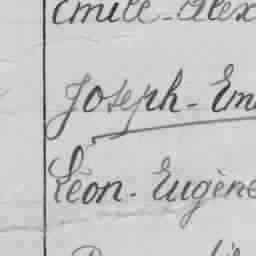 Emile-Alex
Joseph-Em
Léon-Eugène